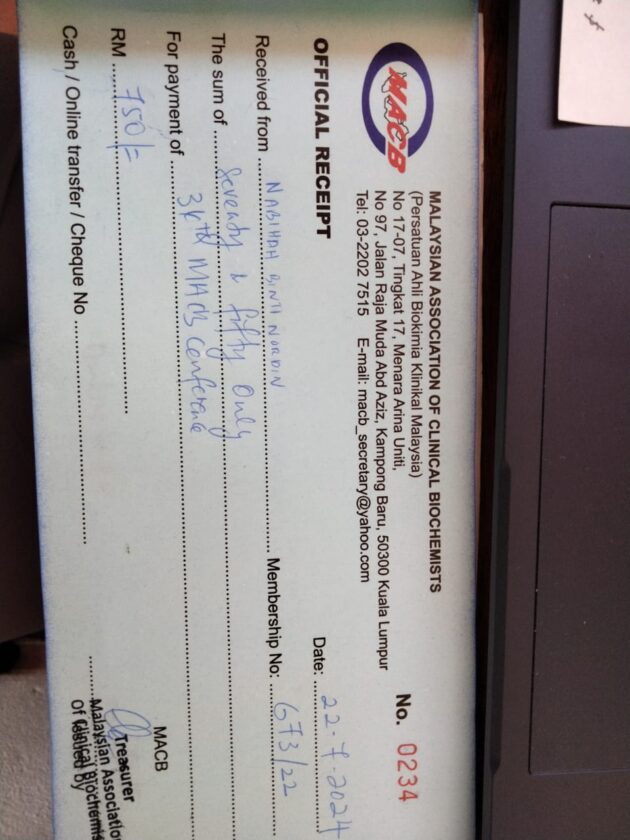 MACB
MALAYSIAN ASSOCIATION OF CLINICAL BIOCHEMISTS
(Persatuan Ahli Biokimia Klinikal Malaysia)
No 17-07, Tingkat 17, Menara Arina Uniti,
No 97, Jalan Raja Muda Abd Aziz, Kampong Baru, 50300 Kuala Lumpur
Tel: 03-2202 7515 E-mail: macb_secretary@yahoo.com
No. 0234
OFFICIAL RECEIPT
Date: 22.7.2024
Received from NABIHAH BINTI NORDIN Membership No: 673/22
The sum of Seventy & fifty Only
For payment of MACB Conference
RM 750/=
MACB
Cash / Online transfer / Cheque No
Treasurer
Malaysian Associatio
Of Clinical Biochemis
Issued by